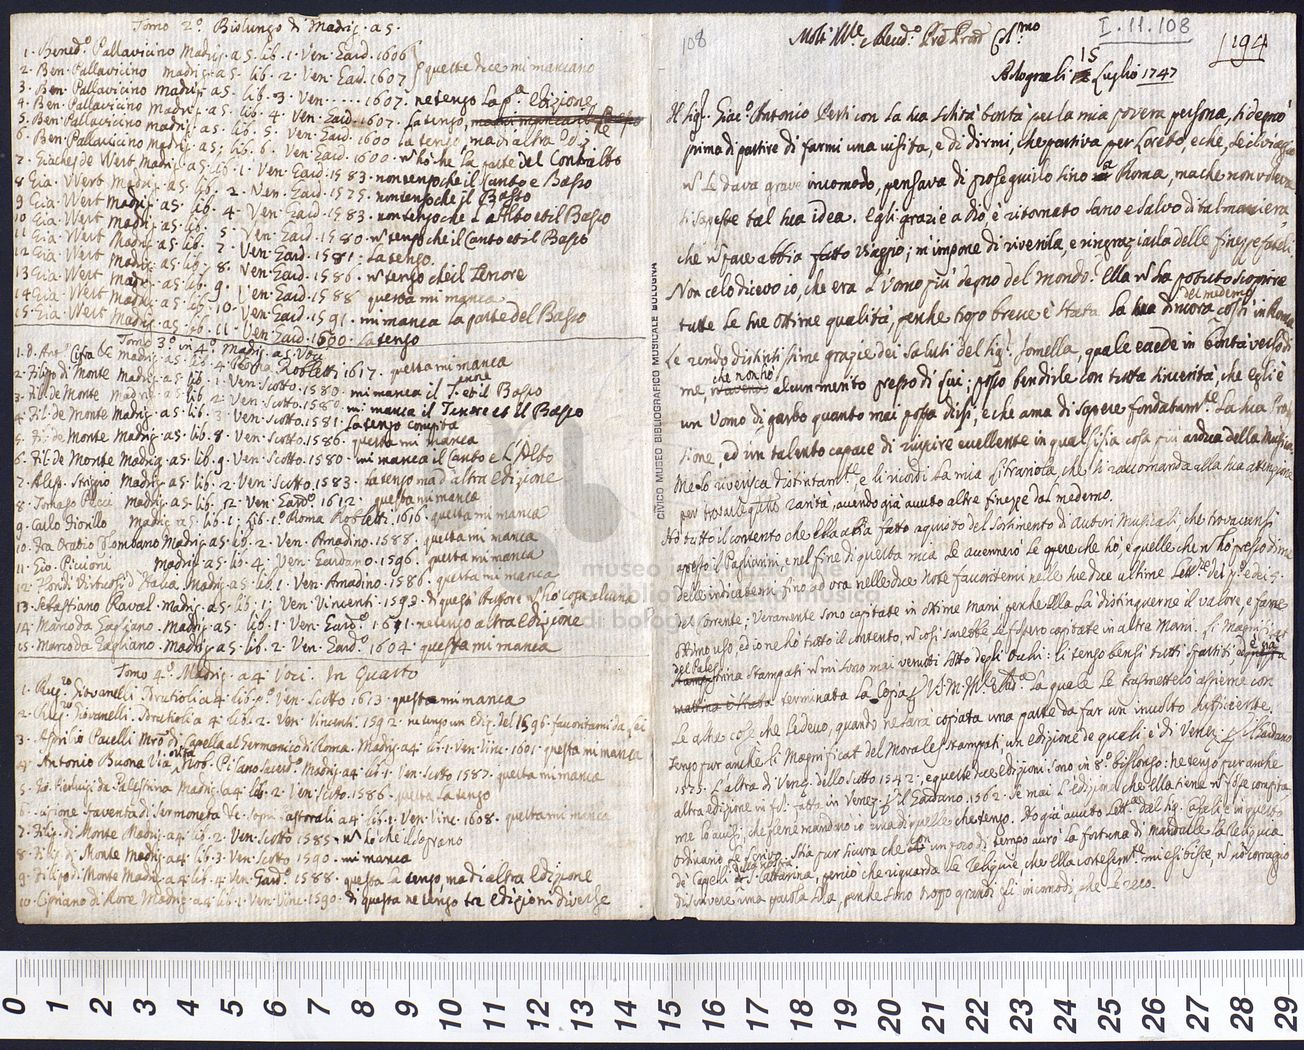 Tomo 2º Bislungo di Madrig. a 5.
1. Bened.º Pallavicino Madrig. a 5. lib. 1. Ven. Gard. 1606
2. Ben. Pallavicino Madrig. a 5. lib. 2. Ven. Gard. 1607
queste due mi mancano
3. Ben. Pallavicino Madrig. a 5. lib. 3. Ven. ..... 1607. ne tengo la pª. Edizione
4. Ben. Pallavicino Madrig. a 5. lib. 4. Ven. Gard. 1607. la tengo,
5. Ben. Pallavicino Madrig. a 5. lib. 5. Ven. Gard. 1600 la tengo, ma di altra Ediz.
6. Ben. Pallavicino Madrig. a 5. lib. 6. Ven. Gard. 1600. n' ho che la parte del Contralto
7. Giaches de Wert Madrig. a 5. lib. 1. Ven. Gard. 1583. non tengo che il Canto e Basso
8. Gia. Wert Madrig. a 5. lib. 2. Ven. Gard. 1575. non tengo che il Basso
9. Gia. Wert Madrig. a 5. lib. 4. Ven. Gard. 1583. non tengo che l'Alto et il Basso
10. Gia. Wert Madrig. a 5. lib. 5. Ven. Gard. 1580. n' tengo che il Canto et il Basso
11. Gia. Wert Madrig. a 5. lib. 7. Ven. Gard. 1581. la tengo.
12. Gia. Wert Madrig. a 5. lib. 8. Ven. Gard. 1586. n' tengo che il Tenore
13. Gia. Wert Madrig. a 5. lib. 9. Ven. Gard. 1588. questa mi manca
14. Gia. Wert Madrig. a 5. lib. 10. Ven. Gard. 1591. mi manca la parte del Basso
15. Gia. Wert Madrig. a 5. lib. 11. Ven. Gard. 1600. la tengo
Tomo 3º in 4º Madrig. a 5. Voci
1. D. Ant.º Cifra Madrig. a 5. lib. 4. Roma Robletti 1617. questa mi manca
2. Filippo di Monte Madrig. a 5. lib. 1. Ven. Scotto. 1580. mi manca il Tenore et il Basso
3. Fil. de Monte Madrig. a 5. lib. 2. Ven. Scotto. 1580. mi manca il Tenore et il Basso
4. Fil. de Monte Madrig. a 5. lib. 3. Ven. Scotto. 1581. la tengo compita
5. Fil. de Monte Madrig. a 5. lib. 8. Ven. Scotto. 1586. questa mi manca
6. Fil. de Monte Madrig. a 5. lib. 9. Ven. Scotto. 1580. mi manca il Canto e l'Alto
7. Aless. Strigio Madrig. a 5. lib. 2. Ven. Scotto. 1583. la tengo ma d'altra edizione
8. Tomaso Pecci Madrig. a 5. lib. 2. Ven. Gard.º 1612. questa mi manca
9. Carlo Fiorillo Madrig. a 5. lib. 1. Roma Robletti 1616. questa mi manca
10. Fra Oratio Madrig. a 5. lib. 2. Ven. Amadino. 1588. questa mi manca
11. Gio. Piccioni Madrig. a 5. lib. 4. Ven. Gardano. 1596. questa mi manca
12. Fiori di Virtuosi d'Italia Madrig. a 5. lib. 1. Ven. Amadino. 1586. questa mi manca
13. Sebastiano Raval. Madrig. a 5. lib. 1. Ven. Vincenti. 1593. di questo Autore n' ho cosa alcuna
14. Marco da Gagliano. Madrig. a 5. lib. 1. Ven. Gard.º 1611. ne tengo altra Edizione
15. Marco da Gagliano. Madrig. a 5. lib. 2. Ven. Gard.º 1604. questa mi manca
Tomo 4º. Madrig. a 4 Voci. In Quarto
1. Rug.º Giovanelli. Sdruccioli a 4 lib. pº. Ven. Scotto 1613. questa mi manca
2. Rug.º Giovanelli. Sdruccioli a 4 lib. 2. Ven. Vincenti. 1592. ne tengo un ediz. del 1596. favoritami da lei
3. Asprilio Pacelli Mro di Capella al Germanico di Roma. Madrig. a 4. lib. 1. Ven. Vinc. 1601. questa mi manca
4. Antonio Buona Vita Nob. Pisano Sacerd.º Madrig. a 4. lib. 1. Ven. Scotto. 1587. questa mi manca
5. Gio. Pierluigi da Palestrina Madrig. a 4. lib. 2. Ven. Scotto. 1586. questa la tengo
6. faventa di Sermoneta de' Sospiri Pastorali a 4. lib. 1. Ven. Vinc. 1608. questa mi manca
7. Filip. di Monte Madrig. a 4. lib. 2. Ven. Scotto. 1585. n' ho che il Soprano
8. Filip. di Monte Madrig. a 4. lib. 3. Ven. Scotto. 1590. mi manca
9. Filipo di Monte Madrig. a 4. lib. 4. Ven. Gard.º 1588. questa la tengo, ma di altra Edizione
10. Cipriano di Rore Madrig. a 4. lib. 1. Ven. Vinc. 1590. di questa ne tengo tre edizioni diverse
108
I. 11. 108
194
Molt' Ill.e e Rend.º Pre Pron Col.mo
Bologna li 15 Luglio 1747
Il Sig.r Giac.º Antonio Perti con la sua solita bontà per la mia povera persona, si degnò
prima di partire di farmi una visita, e di dirmi, che partiva per Loreto, e che, se il viaggio
n' le dava grave incomodo, pensava di proseguirlo sino a Roma, ma che non voleva
si sapesse tal sua idea. Egli grazie a Dio è ritornato sano e salvo di tal maniera
che n' pare abbia fatto viaggio; m'impone di riverirla, e ringraziarla delle finezze fateli.
Non celo dicevo io, che era l'Uomo più degno del mondo? Ella n' ha potuto scoprire
tutte le sue ottime qualità, perche troppo breve è stata la sua dimora costì in Roma
Le rendo distintissime grazie dei saluti del Sig.r Jomella, quale eccede in bontà verso di
me che non ho alcun merito presso di lui: posso bensì dirle con tutta sincerità, che egli è
un Uomo di garbo quanto mai possa dirsi, e che ama di sapere fondatam.te la sua Profes
sione, ed un talento capace di riuscire eccellente in qualsisia cosa più ardua della Musica
Me lo riverisca distintam.te, e li ricordi la mia che si raccomanda alla sua attenzione
per rarità, avendo già avuto altre finezze dal medemo.
Hò tutto il contento che ella abbia fatto acquisto del Sortimento di Autori Musicali, che trovavansi
apresso il Pagliarini, e nel fine di questa mia le accennerò le opere che hò, e quelle che n' ho presso di me
delle indicatemi sino ad ora nelle due note favoritemi nelle sue due ultime Lett.re dei pº. e dei 5.
del corrente. Veramente sono capitate in ottime Mani, perche ella sà distinguerne il valore, e farne
ottimo uso, ed io ne hò tutto il contento, n' così sarebbe se fossero capitate in altre Mani. Li Magnificat
del Pales
trina Stampati n' mi sono mai venuti sotto degli Occhi: li tengo bensì tutti spartiti
è già terminata la Copia la quale le trasmetterò assieme con
le altre cose che le devo, quando ne sarà copiata una parte da far un involto sufficiente.
Tengo pur anche li Magnificat del Morales stampati; un edizione de quali è di Venez. il Gardano
1575. L'altra di Venez. dello Scotto 1542. e queste due edizioni sono in 8º. bislongo: ne tengo pur anche
altra edizione in fol. fatta in Venez. il Gardano. 1562. Se mai l'edizione che ella tiene n' fosse compita
me lo avvisi, che gliene manderò io una di quelle che tengo. Ho già avuto Lett.ª del Sig.
ordinario Stia pur sicura che con un poco di tempo avrò la fortuna di mandarle la reliquia
de' Capelli della nostra S. Cattarina, perciò che riguarda le Reliquie, che ella cortesem.te mi esibisce, n' ho coraggio
di scrivere una parola sola, perche sono troppo grandi gli incomodi, che le reco.
CIVICO MUSEO BIBLIOGRAFICO MUSICALE BOLOGNA
museo internazionale
e biblioteca della musica
di bologna
0 1 2 3 4 5 6 7 8 9 10 11 12 13 14 15 16 17 18 19 20 21 22 23 24 25 26 27 28 29